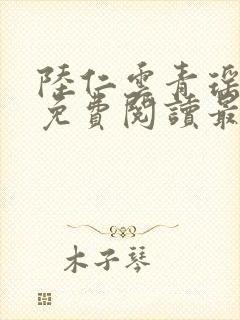 陸仁雲青瑶
免費閱讀最
木子琴